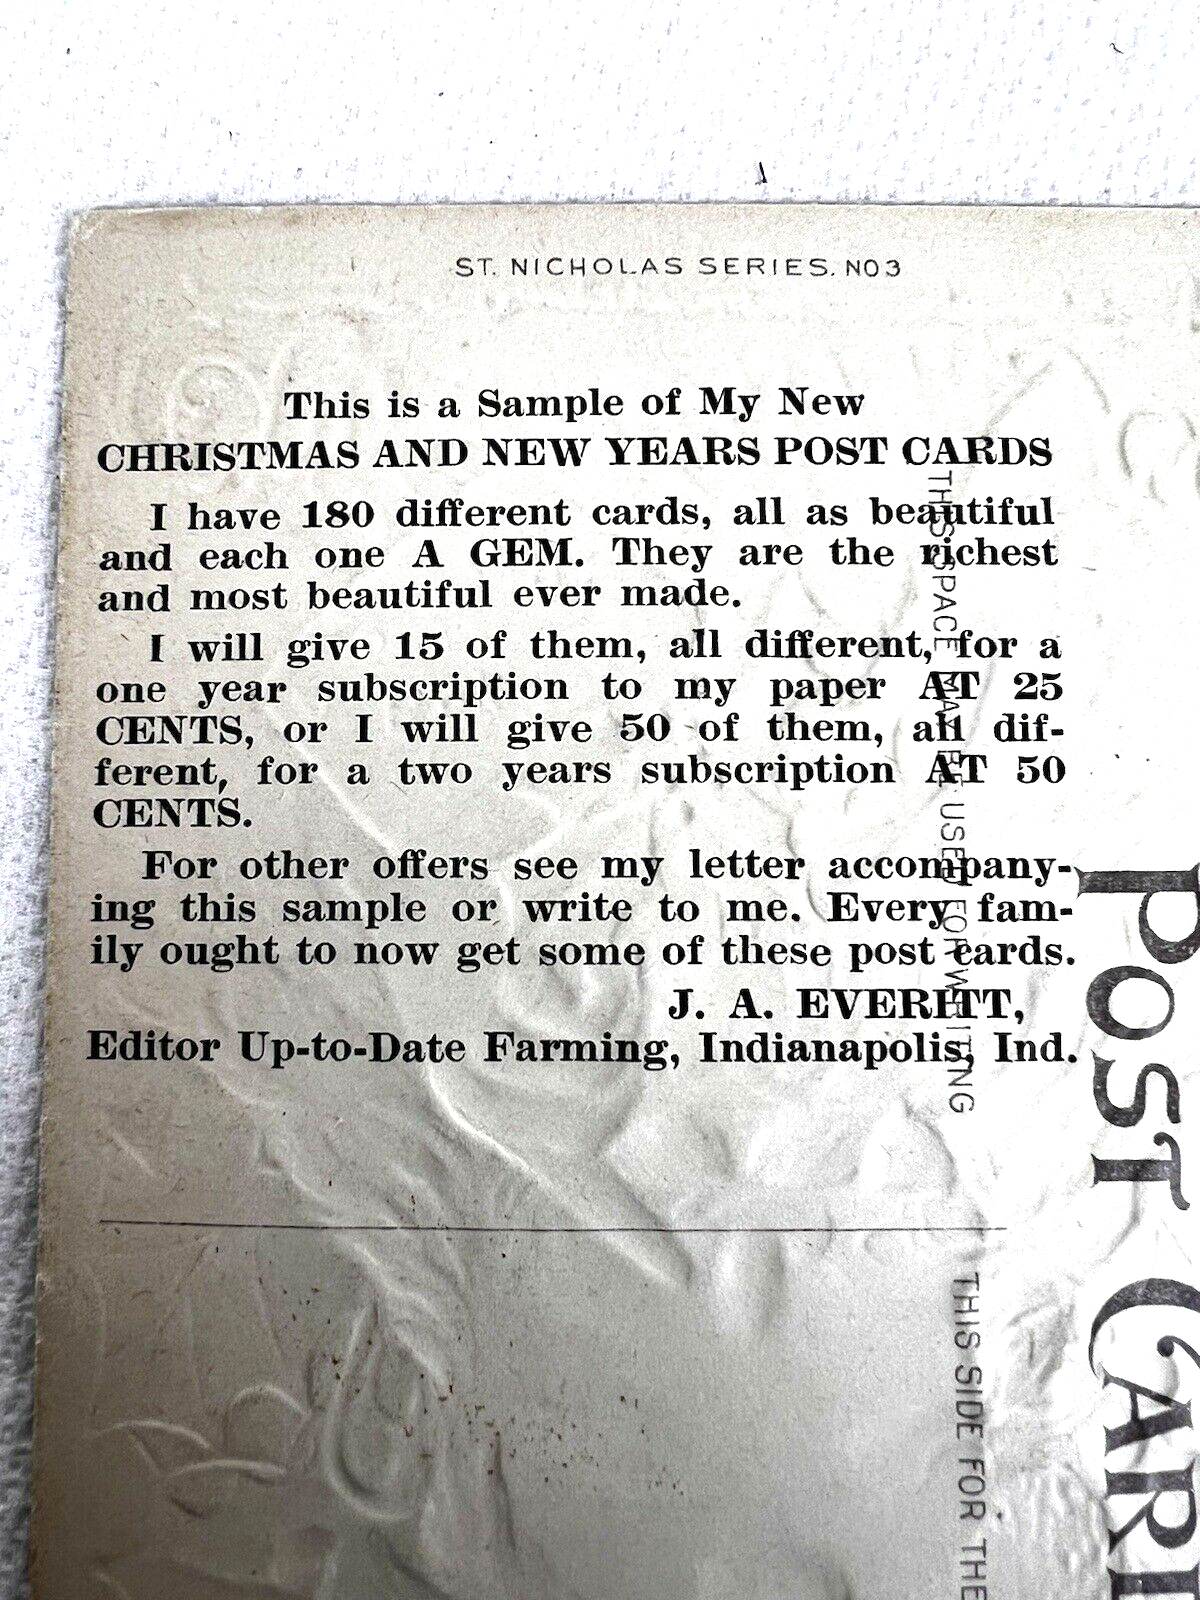 ST. NICHOLAS SERIES. NO 3
This is a Sample of My New
CHRISTMAS AND NEW YEARS POST CARDS
I have 180 different cards, all as beautiful
and each one A GEM. They are the richest
and most beautiful ever made.
I will give 15 of them, all different, for a
one year subscription to my paper AT 25
CENTS, or I will give 50 of them, all dif-
ferent, for a two years subscription AT 50
CENTS.
For other offers see my letter accompany-
ing this sample or write to me. Every fam-
ily ought to now get some of these post cards.
J. A. EVERITT,
Editor Up-to-Date Farming, Indianapolis, Ind.
THIS SPACE MAY BE USED FOR WRITING
THIS SIDE FOR THE
POST CARD